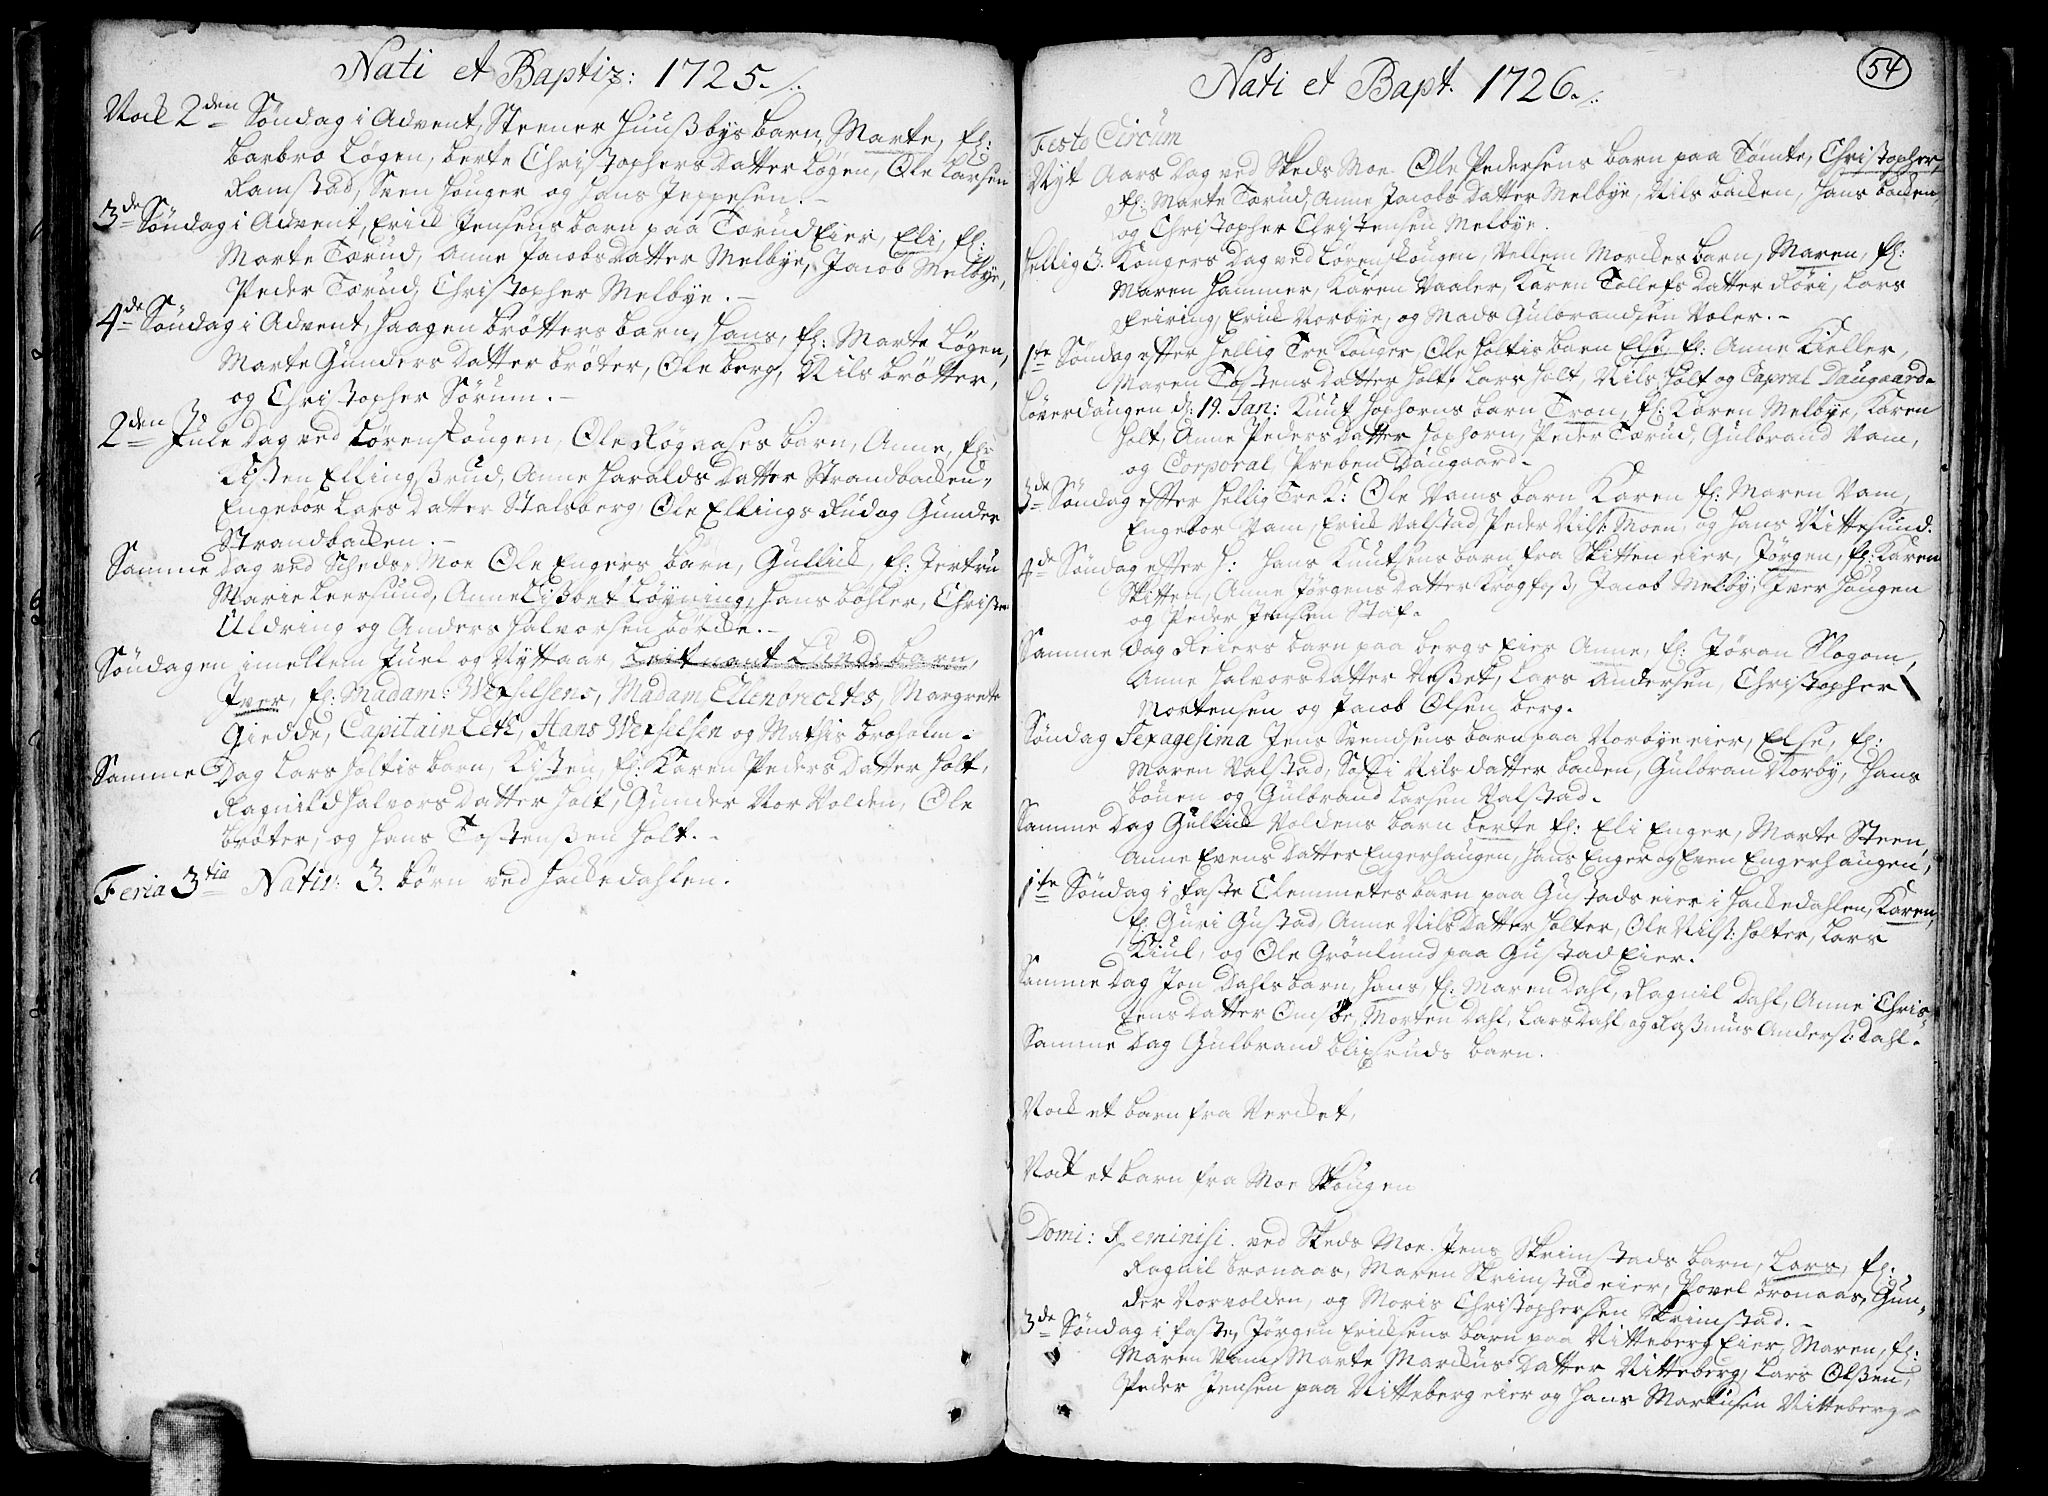 Nati et Baptiz: 1725./.
Nock 2den Søndag i Advent, Steener Huußbys barn, Marte, f:
barbro Løgen, berte Christophers Datter Løgen, Ole Larsen
Ramstad, Sven Houger og Hans Jeppesen.-
3de Søndag i Advent, Erick Jensens barn paa Tørud Eier, Eli, f:
Marte Tørud, Anne Jacobs Datter Melbye, Jacob Melbye,
Peder Tørud, Christopher Melbye.-
4de Søndag i Advent, Haagen brøtters barn, Hans, f: Marte Løgen,
Marte Gunders Datter brøter, Ole berg, Nils brøtter,
og Christopher Sørum.-
2den Jule Dag ved Lørenskougen, Ole Røgaases barn, Anne, f:
Kisten Ellingßrud, Anne Haralds Datter Strandbacken,
Engebor Lars Datter Stalsberg, Ole Ellings Rud og Gunder
Strandbacken.-
Samme Dag ved Scheds Moe Ole Engers barn, Gullick, f: Jertru
Marie Leersund, Anne Lisbet Løvning, Hans bøhler, Christen
Uldring og Anders Halvorsen børcke.-
Søndagen imellem Juel og Nyttaar, Leitnant Lunds barn,
Iver, f: Madam: Wexelsens, Madam Ellenorichts, Margrete
Giedde, Capitain Leth, Hans Wexelsen og Mathis broholm.-
Samme Dag Lars Holtis barn, Kisten, f: Karen Peders Datter Holt,
Ragnild Halvors Datter Holt, Gunder Nor Volden, Ole
brøter, og Hans Tostensßen Holt.-
Feria 3tia Nativ: 3. børn ved Hackedahlen.
54
Nati et Bapt. 1726./.
Festo Circum
Nyt Aars Dag ved Skeds Moe Ole Pedersens barn paa Tømte, Christopher,
f: Marte Tørud, Anne Jacobs Datter Melbye, Nils backen, Hans backen,
og Christopher Christensen Melbye.
Hellig 3. Kongers Dag ved Lørenskougen, Vellem Morckes barn, Maren, f:
Maren Hammer, Karen Vaaler, Karen Tollefs Datter Røri, Lars
Feiring, Erick Norbye, og Mads Gulbrandsen Voler.-
1te Søndag efter Hellig Tre Konger, Ole Holtis barn Else, f: Anne Kieller,
Maren Tostens Datter Holt, Lars Holt, Nils Holt og Capral Daugaard.
Løverdaugen d: 19. Jan: Knut Hophorns barn Tron, f: Karen Melbye, Karen
Holt, Anne Peders Datter Hophorn, Peder Tørud, Gulbrand Vam,
og Corporal Preben Daugaard.
3de Søndag efter Hellig Tre K: Ole Vams barn Karen f: Maren Vam,
Engebor Vam, Erick Valstad, Peder Nils: Moen, og Hans Nittesund.
4de Søndag efter H: Hans Knutsens barn fra Skitten eier, Jørgen, f: Karen
Skitten, Anne Jørgens Datter Krogfoß, Jacob Melby, Iver Haugen
og Peder Jensen Staf.
Samme Dag Reiers barn paa bergs Eier Anne, f: Jøran Slogom,
Anne Halvors Datter Neßet, Lars Andersen, Christopher
Mortensen og Jacob Olsen berg.
Søndag Sexagesima Jens Svendsens barn paa Norbye eier, Else, f:
Maren Valstad, Soffi Nils datter backen, Gulbran Norby, Hans
bouen og Gulbrand Larsen Valstad.
Samme Dag Gullick Voldens barn berte f: Eli Enger, Marte Steen,
Anne Evens Datter Engerhaugen, Hans Enger og Even Engerhaugen,
1te Søndag i faste Clemmetes barn paa Gustads eier i Hackedahlen, Karen,
f: Guri Gustad, Anne Nils Datter Holter, Ole Nils: Holter, Lars
Kiul, og Ole Grønlund paa Gustad Eier.
Samme Dag Jon Dahls barn, Hans, f: Maren Dahl, Ragnil Dahl, Anne Chris-
tens Datter Omsøe, Morten Dahl, Lars Dahl og Raßmus Anders: Dahl.
Samme Dag Gulbrand blixruds barn.
Nock et barn fra Vercket,
Nock et barn fra Moe Skougen
Domi: Reminisi. ved Skeds Moe. Jens Skrimstads barn, Lars, f:
Ragnil bronaas, Maren Skrimstad eier, Povel bronaas, Gun-
der Norvolden, og Moris Christophersen Skrimstad.-
3de Søndag i faste, Jørgen Ericksens barn paa Nitteberg Eier, Maren, f:
Maren Vam, Marte Marckus Datter Nitteberg, Lars Olßen,
Peder Jensen paa Nitteberg eier og Hans Markusen Nitteberg.-